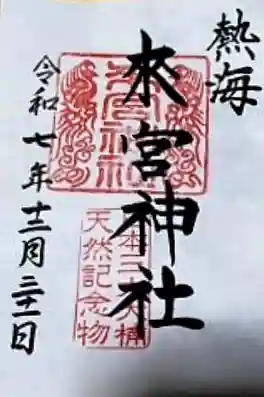 熱海
來宮神社
令和七年十二月三十一日
來宮神社
日本三大楠
天然記念物